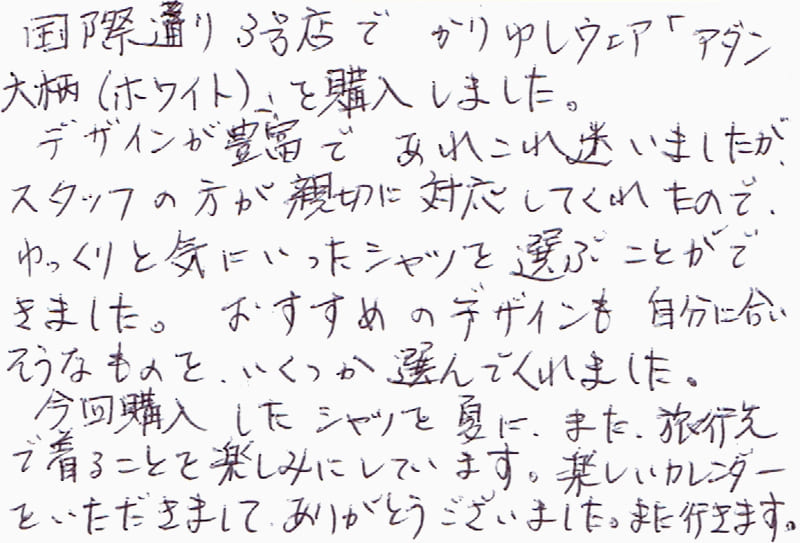 国際通り3号店で かりゆしウェア「アダン
大柄(ホワイト)」を購入しました。
デザインが豊富で あれこれ迷いましたが、
スタッフの方が親切に対応してくれたので、
ゆっくりと気にいったシャツを選ぶことがで
きました。おすすめのデザインも自分に合い
そうなものを、いくつか選んでくれました。
今回購入したシャツを夏に、また、旅行先
で着ることを楽しみにしています。楽しいカレンダー
をいただきまして、ありがとうございました。また行きます。